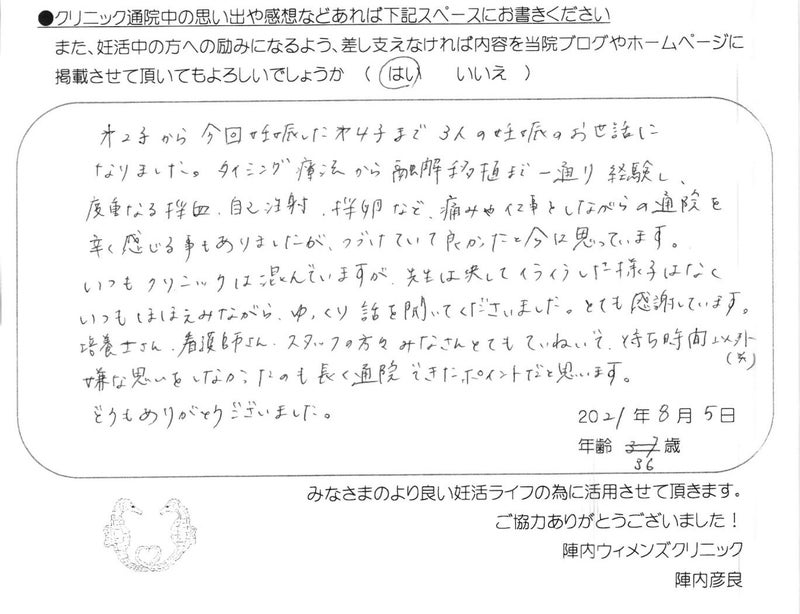 ●クリニック通院中の思い出や感想などあれば下記スペースにお書きください
また、妊活中の方への励みになるよう、差し支えなければ内容を当院ブログやホームページに
掲載させて頂いてもよろしいでしょうか （ はい いいえ ）
才2子から今回妊娠した才4子まで3人の妊娠のお世話に
なりました。タイミング療法から融解移植まで一通り経験し、
度重なる採血、自己注射、採卵など、痛みや仕事をしながらの通院を
辛く感じる事もありましたが、つづけていて良かったと今は思っています。
いつもクリニックは混んでいますが、先生は決してイライラした様子はなく
いつもほほえみながら、ゆっくり話を聞いてくださいました。とても感謝しています。
培養士さん、看護師さん、スタッフの方々みなさんとてもていねいで、待ち時間以外(笑)
嫌な思いをしなかったのも長く通院できたポイントだと思います。
どうもありがとうございました。
2021年8月5日
年齢 37 36 歳
みなさまのより良い妊活ライフの為に活用させて頂きます。
ご協力ありがとうございました！
陣内ウィメンズクリニック
陣内彦良